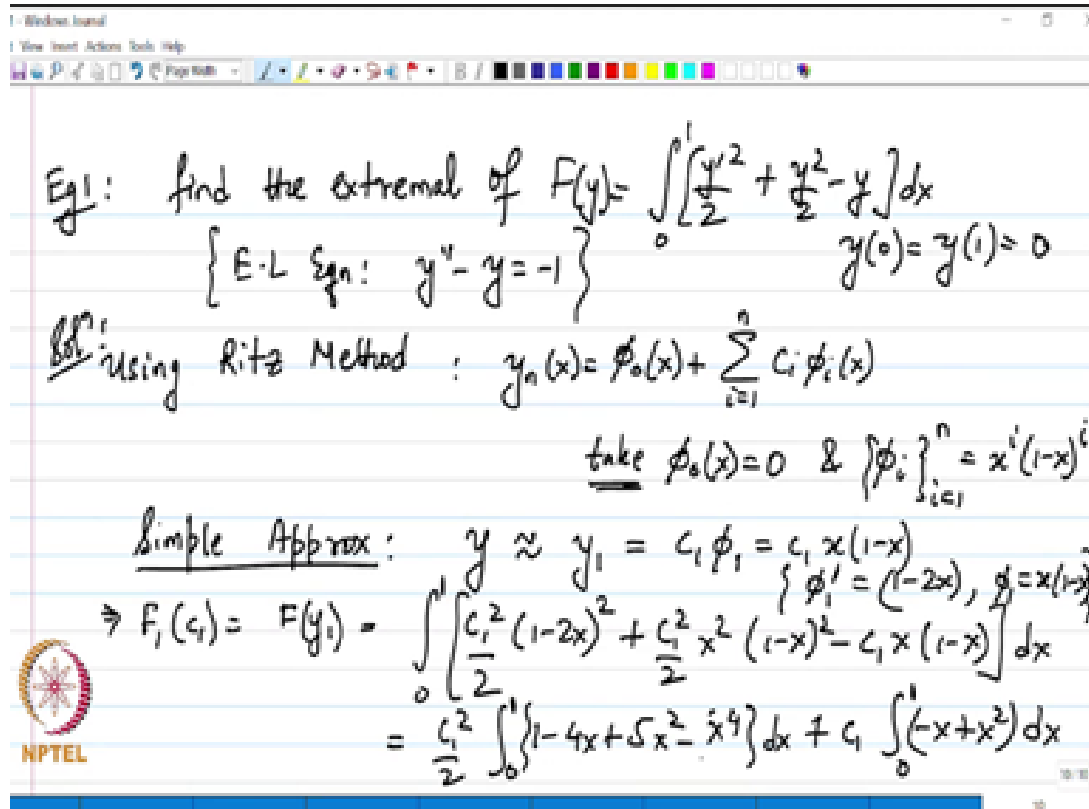 View Insert Actions Tools Help
Page Width
Eg1: find the extremal of F(y) = ∫₀¹ [y'²/2 + y²/2 - y] dx
{E-L Eqn: y" - y = -1} y(0) = y(1) = 0
Solⁿ: Using Ritz Method : yₙ(x) = ϕ₀(x) + Σᵢ₌₁ⁿ cᵢ ϕᵢ(x)
take ϕ₀(x) = 0 & {ϕᵢ}ᵢ₌₁ⁿ = xⁱ(1-x)ⁱ
Simple Approx : y ≈ y₁ = c₁ ϕ₁ = c₁ x(1-x)
{ϕ₁' = (1-2x), ϕ₁ = x(1-x)
⇒ F₁(c₁) = F(y₁) = ∫₀¹ [c₁²/2 (1-2x)² + c₁²/2 x² (1-x)² - c₁ x (1-x)] dx
= c₁²/2 ∫₀¹ {1 - 4x + 5x² - x⁴} dx + c₁ ∫₀¹ (-x + x²) dx
NPTEL